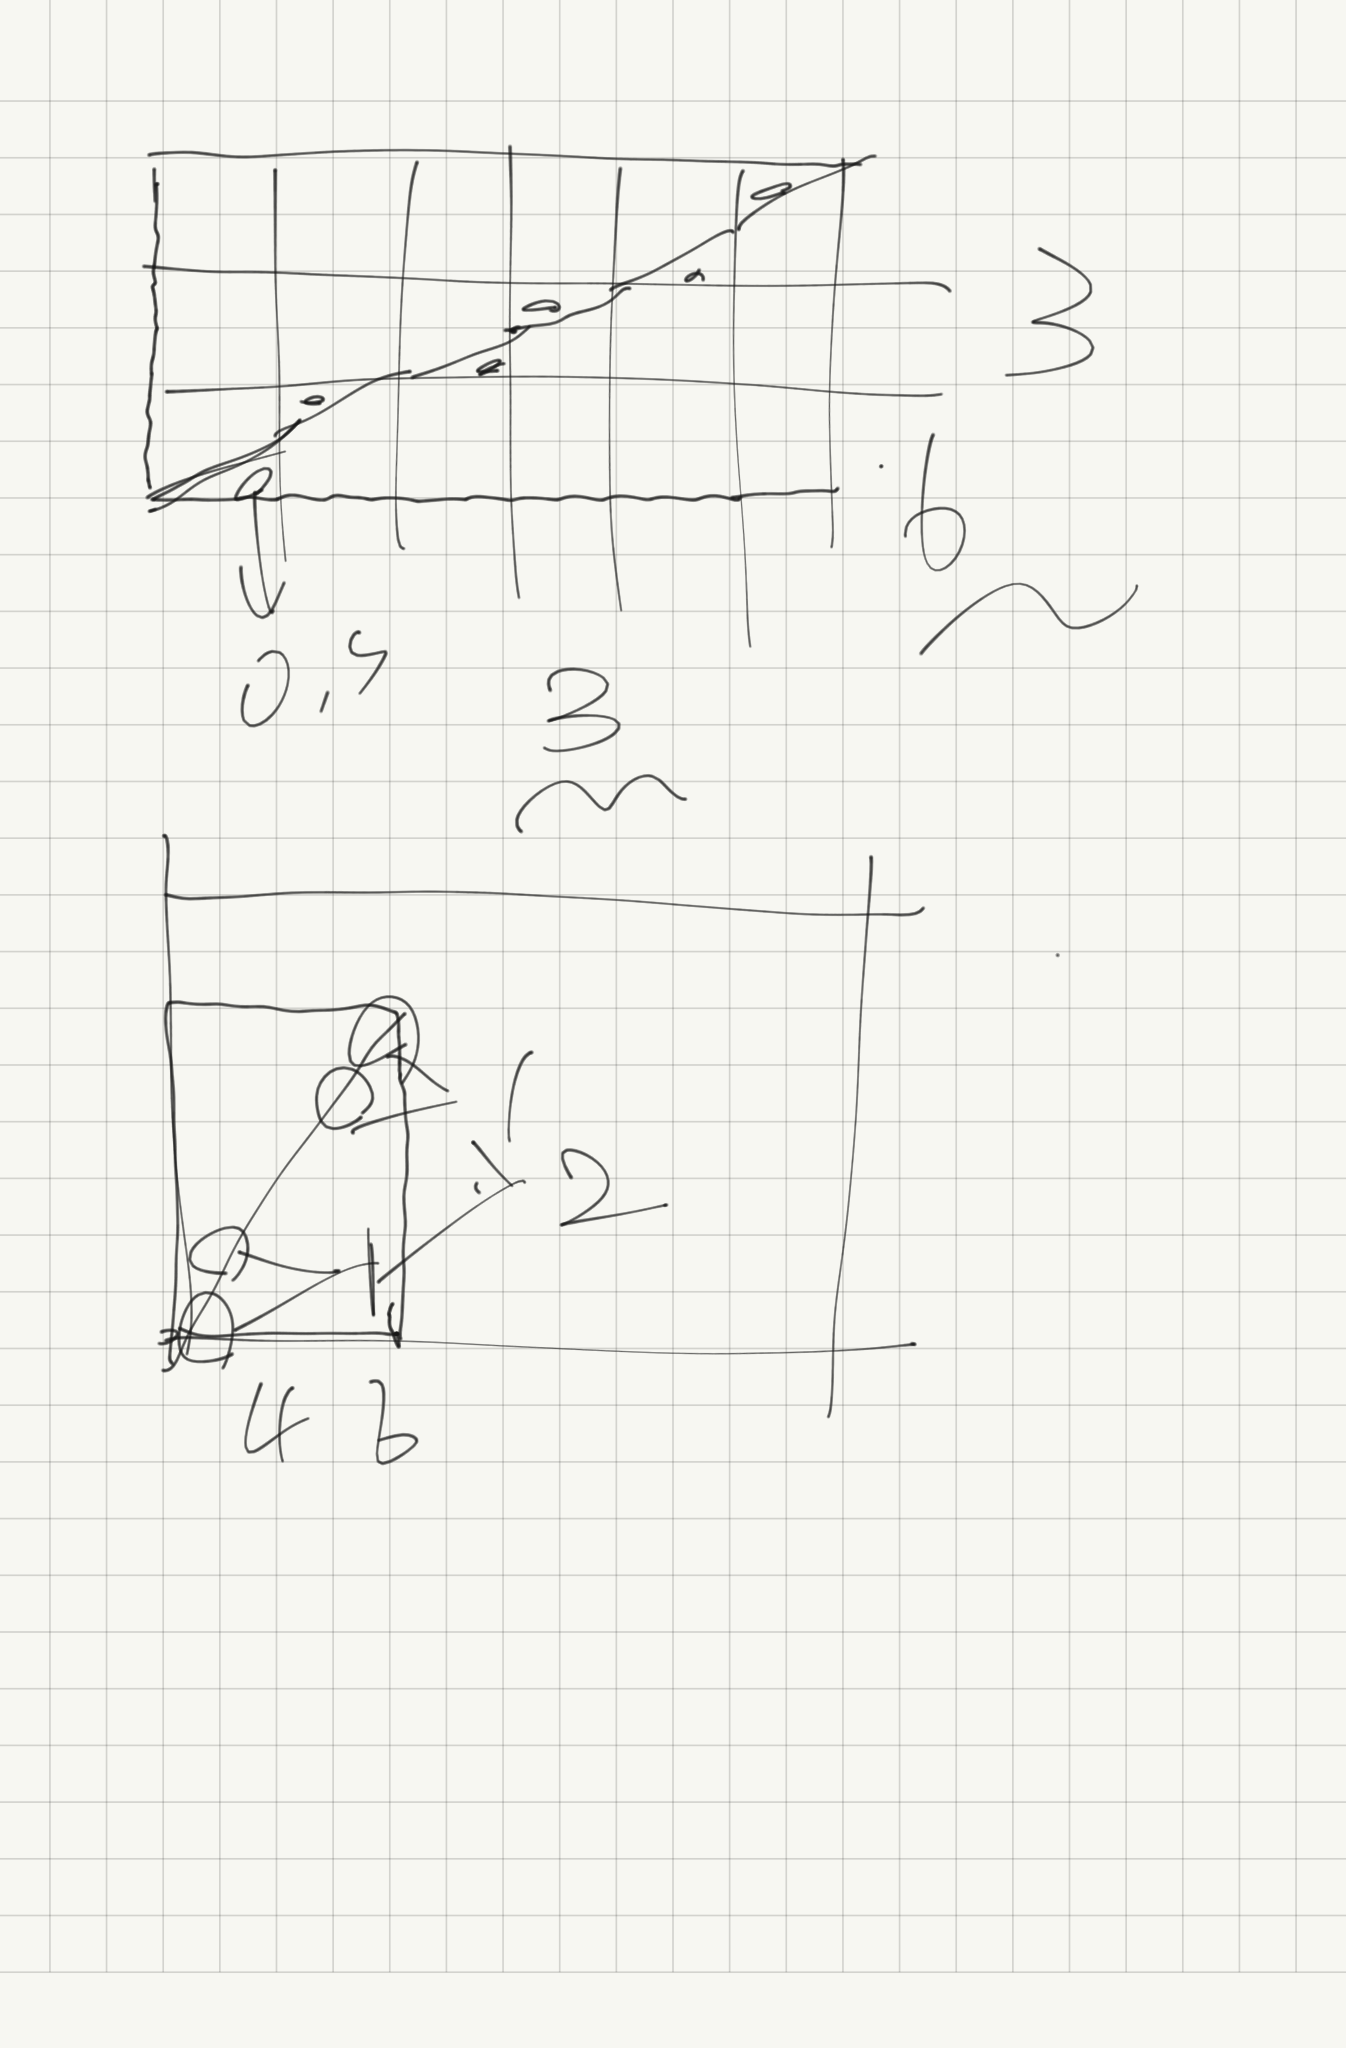 3
6
0,5
3
12
4 6